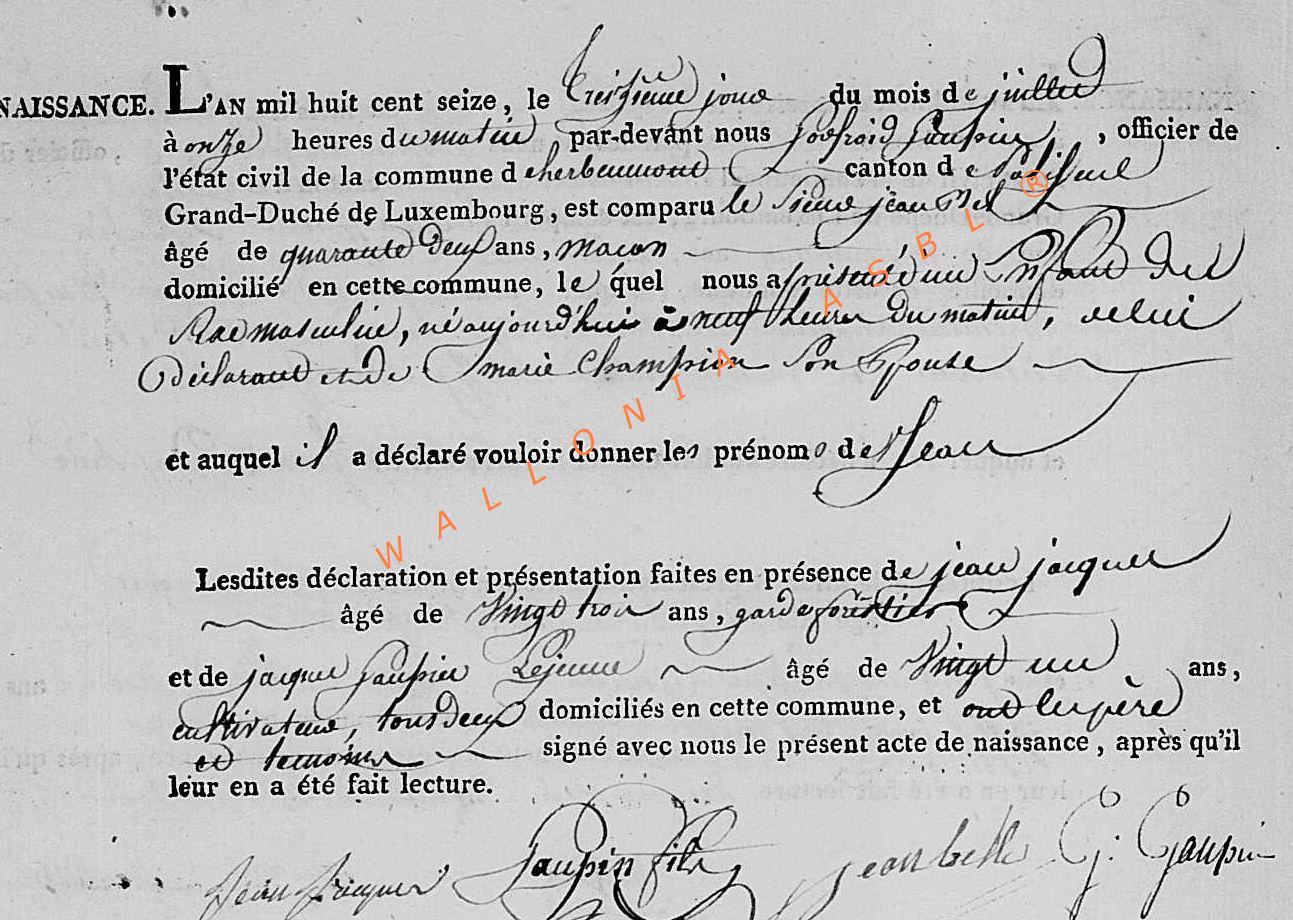 NAISSANCE. L'AN mil huit cent seize, le treisieme jour du mois de juillet
à onze heures du matin par-devant nous Godfroid Gaupin, officier de
l'état civil de la commune d'herbeumont canton de Paliseul
Grand-Duché de Luxembourg, est comparu le Sieur jean Bel
âgé de quarante deux ans, macon
domicilié en cette commune, le quel nous a présenté un Enfant du
Sexe masculin, né aujourd'hui à neuf heures du matin, de lui
Déclarant et de marie Champion Son Epouse
et auquel il a déclaré vouloir donner les prénoms de Jean
Lesdites déclaration et présentation faites en présence de jean jacques
âgé de Vingt trois ans, garde forestier
et de jacques Gaupin Lejeune âgé de Vingt un ans,
cultivateur, tous deux domiciliés en cette commune, et ont les père
et temoins signé avec nous le présent acte de naissance, après qu'il
leur en a été fait lecture.
Jean Jacques Gaupin fils jean belle G: Gaupin
WALLONIA ASBL ®